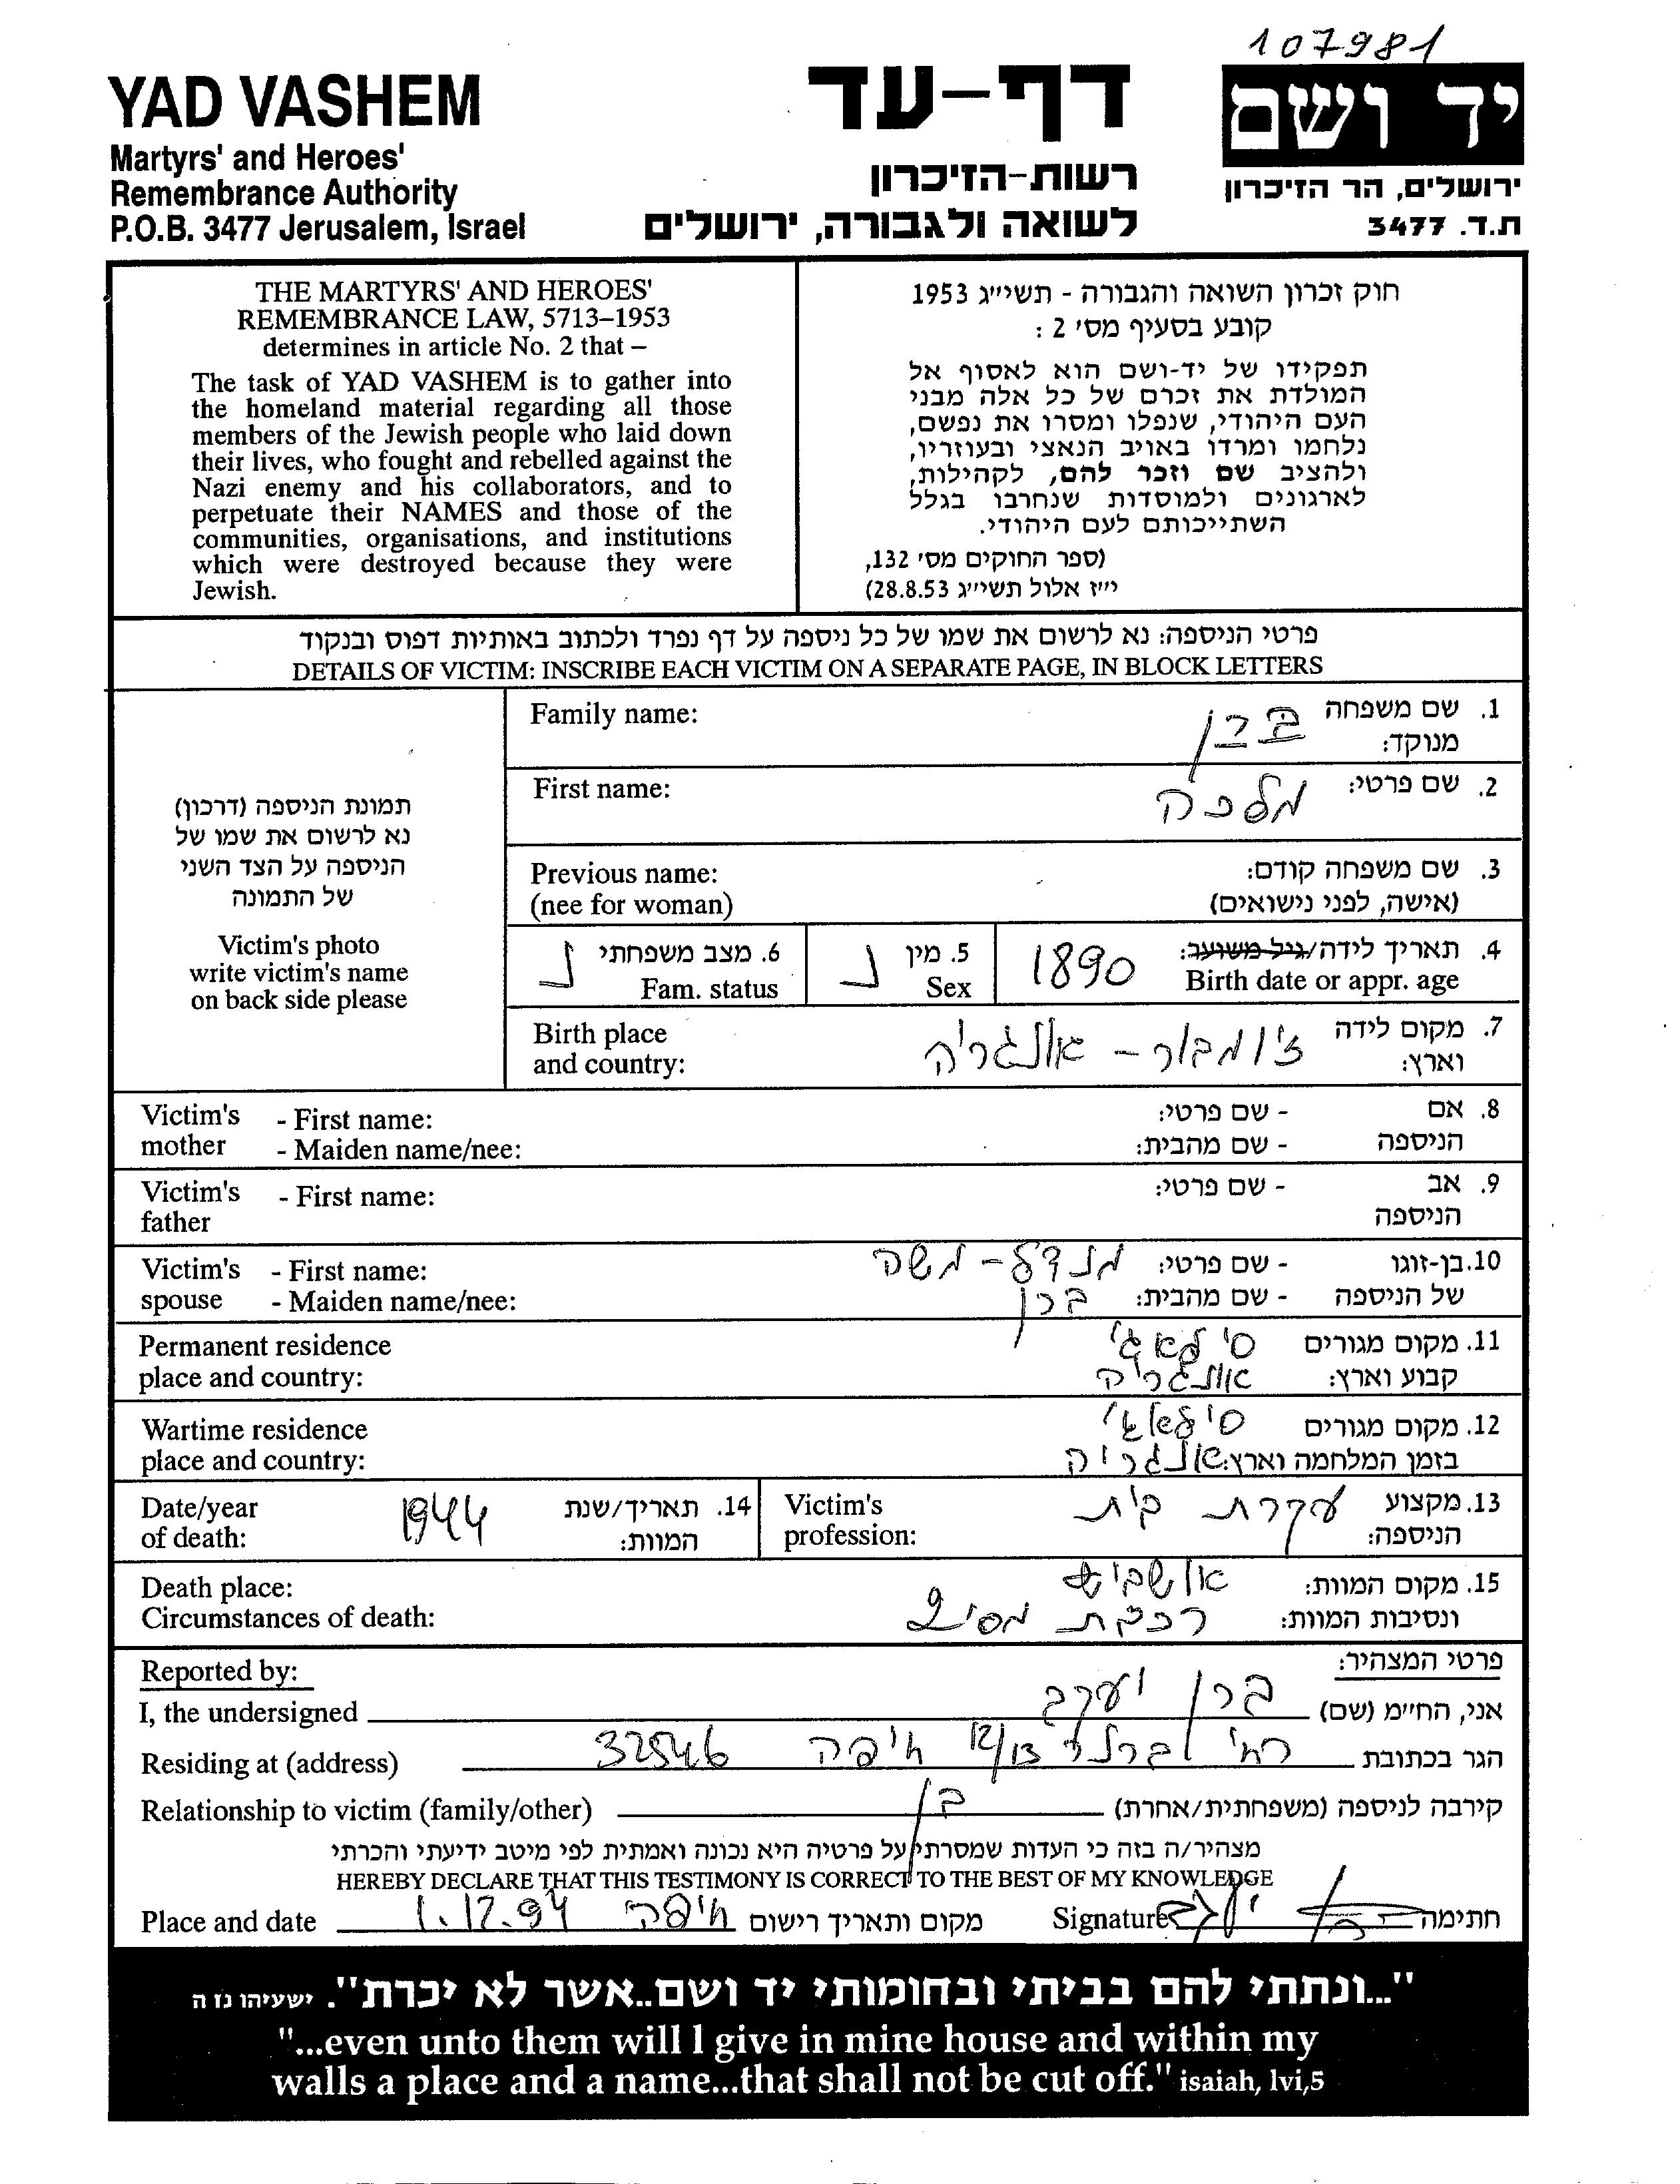 107981
YAD VASHEM
Martyrs' and Heroes'
Remembrance Authority
P.O.B. 3477 Jerusalem, Israel
דף-עד
רשות-הזיכרון
לשואה ולגבורה, ירושלים
יד ושם
ירושלים, הר הזיכרון
ת.ד. 3477
THE MARTYRS' AND HEROES'
REMEMBRANCE LAW, 5713–1953
determines in article No. 2 that –
The task of YAD VASHEM is to gather into
the homeland material regarding all those
members of the Jewish people who laid down
their lives, who fought and rebelled against the
Nazi enemy and his collaborators, and to
perpetuate their NAMES and those of the
communities, organisations, and institutions
which were destroyed because they were
Jewish.
חוק זכרון השואה והגבורה - תשי״ג 1953
קובע בסעיף מס׳ 2 :
תפקידו של יד-ושם הוא לאסוף אל
המולדת את זכרם של כל אלה מבני
העם היהודי, שנפלו ומסרו את נפשם,
נלחמו ומרדו באויב הנאצי ובעוזריו,
ולהציב שם וזכר להם, לקהילות,
לארגונים ולמוסדות שנחרבו בגלל
השתייכותם לעם היהודי.
(ספר החוקים מס׳ 132,
י״ז אלול תשי״ג 28.8.53)
פרטי הניספה: נא לרשום את שמו של כל ניספה על דף נפרד ולכתוב באותיות דפוס ובנקוד
DETAILS OF VICTIM: INSCRIBE EACH VICTIM ON A SEPARATE PAGE, IN BLOCK LETTERS
תמונת הניספה (דרכון)
נא לרשום את שמו של
הניספה על הצד השני
של התמונה
Victim's photo
write victim's name
on back side please
Family name: בַּרַן 1. שם משפחה
מנוקד:
First name: מלכה 2. שם פרטי:
Previous name: 3. שם משפחה קודם:
(nee for woman) (אישה, לפני נישואים)
4. תאריך לידה/גיל משוער: 1890
Birth date or appr. age
5. מין נ
Sex
6. מצב משפחתי נ
Fam. status
Birth place 7. מקום לידה ז'ומבור - אונגריה
and country: וארץ:
Victim's - First name: - שם פרטי: 8. אם
mother - Maiden name/nee: - שם מהבית: הניספה
Victim's - First name: - שם פרטי: 9. אב
father הניספה
Victim's - First name: מנדל - משה - שם פרטי: 10. בן-זוגו
spouse - Maiden name/nee: ברן - שם מהבית: של הניספה
Permanent residence 11. מקום מגורים
place and country: אונגריה קבוע וארץ:
Wartime residence 12. מקום מגורים
place and country: אונגריה בזמן המלחמה וארץ:
Date/year 1944 14. תאריך/שנת
of death: המוות:
Victim's עקרת בית 13. מקצוע
profession: הניספה:
Death place: אושביץ 15. מקום המוות:
Circumstances of death: רכבת ונסיבות המוות:
Reported by: פרטי המצהיר:
I, the undersigned ברן יעקב אני, החי״מ (שם)
Residing at (address) רח' 12/13 חיפה 32546 הגר בכתובת
Relationship to victim (family/other) בן קירבה לניספה (משפחתית/אחרת)
מצהיר/ה בזה כי העדות שמסרתי על פרטיה היא נכונה ואמתית לפי מיטב ידיעתי והכרתי
HEREBY DECLARE THAT THIS TESTIMONY IS CORRECT TO THE BEST OF MY KNOWLEDGE
Place and date 1.12.94 חיפה מקום ותאריך רישום Signature חתימה
"...ונתתי להם בביתי ובחומותי יד ושם..אשר לא יכרת". ישעיהו נז ה
"...even unto them will I give in mine house and within my
walls a place and a name...that shall not be cut off." isaiah, lvi,5